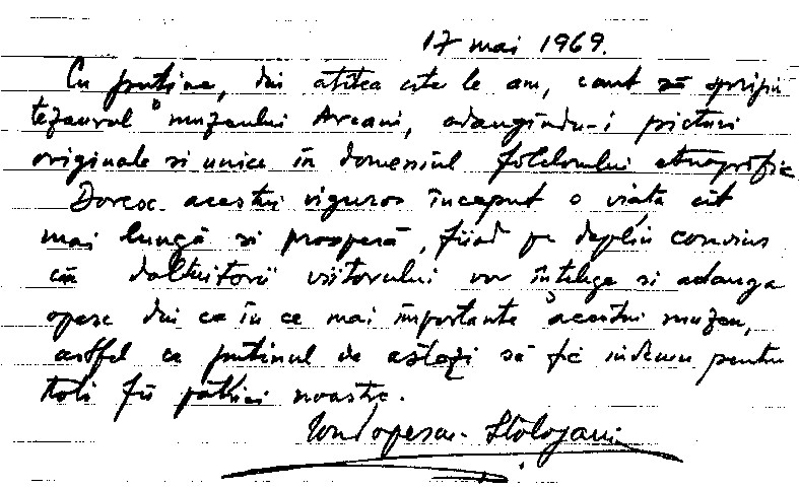 17 mai 1969.
Cu puține, din atîtea cîte le am, caut să sprijin
tezaurul muzeului Arcani, adăugîndu-i picturi
originale si unice în domeniul folclorului etnografic
Doresc acestui viguros început o viață cît
mai lungă si prosperă, fiind pe deplin convins
că dăltuitorii viitorului vor înțelege si adauga
opere din ce în ce mai importante acestui muzeu,
astfel ca puținul de astăzi să fie îndemn pentru
toti fii patriei noastre.
Ion Popescu Stolojani